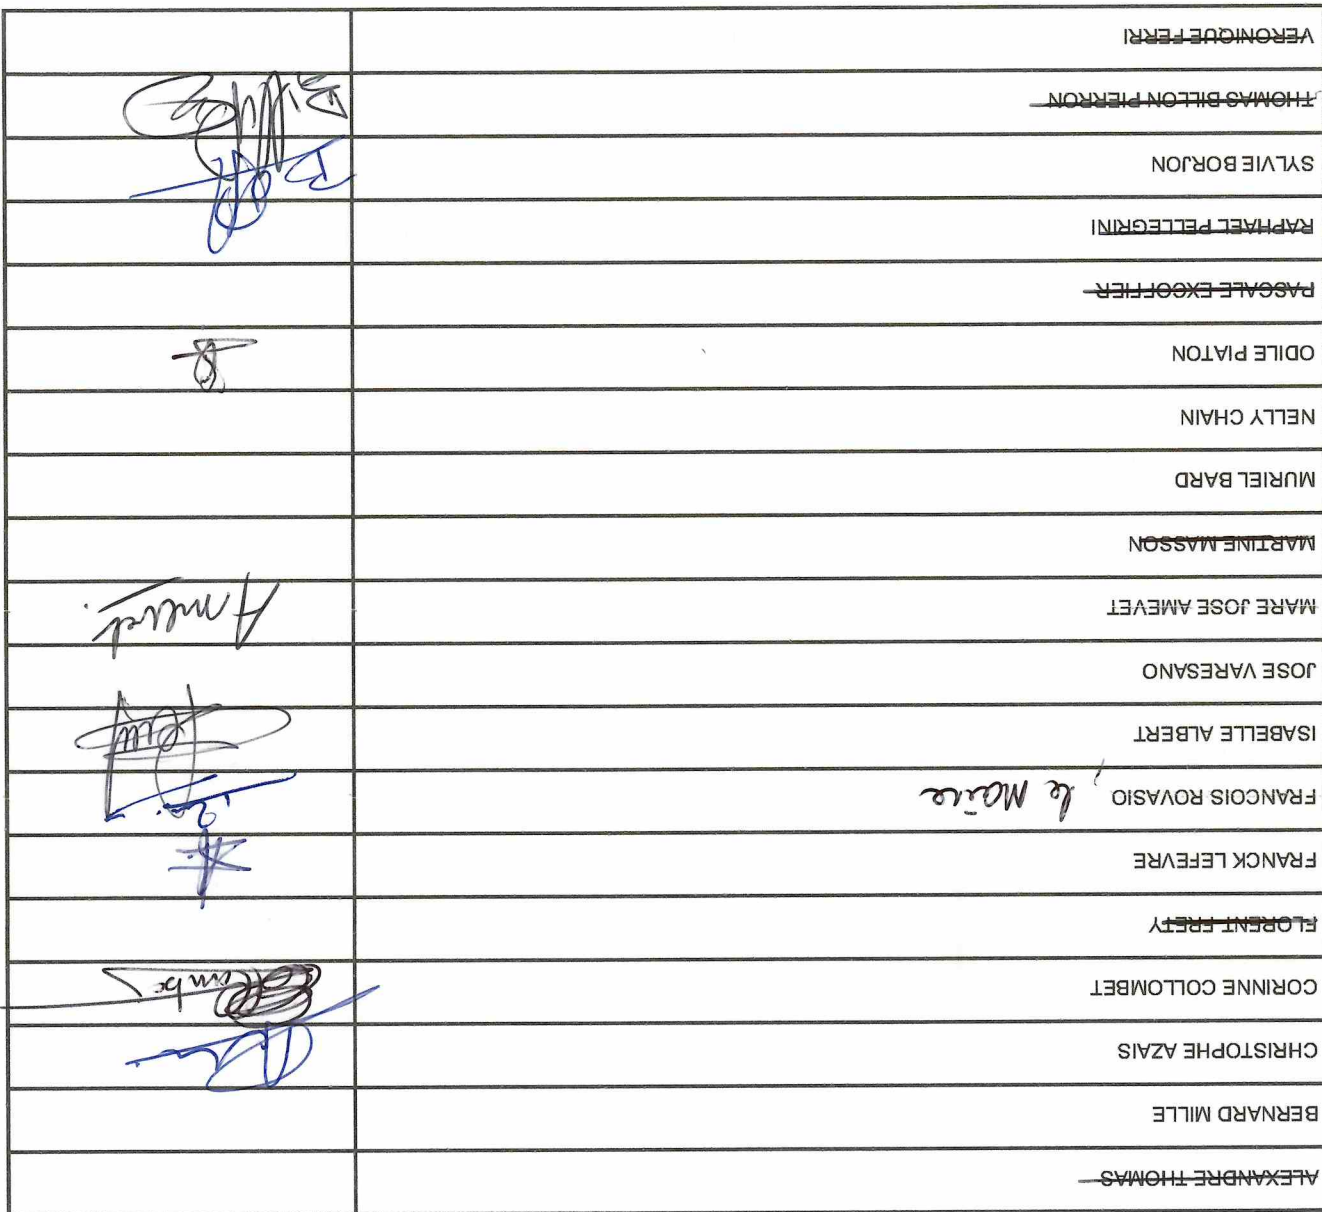 ALEXANDRE THOMAS
BERNARD MILLE
CHRISTOPHE AZAIS
CORINNE COLLOMBET
FLORENT FRETY
FRANCK LEFEVRE
FRANCOIS ROVASIO, le Maire
ISABELLE ALBERT
JOSE VARESANO
MARE JOSE AMEVET Amevet.
MARTINE MASSON
MURIEL BARD
NELLY CHAIN
ODILE PIATON
PASCALE EXCOFFIER
RAPHAEL PELLEGRINI
SYLVIE BORJON
THOMAS BILLON PIERRON
VERONIQUE FERRI